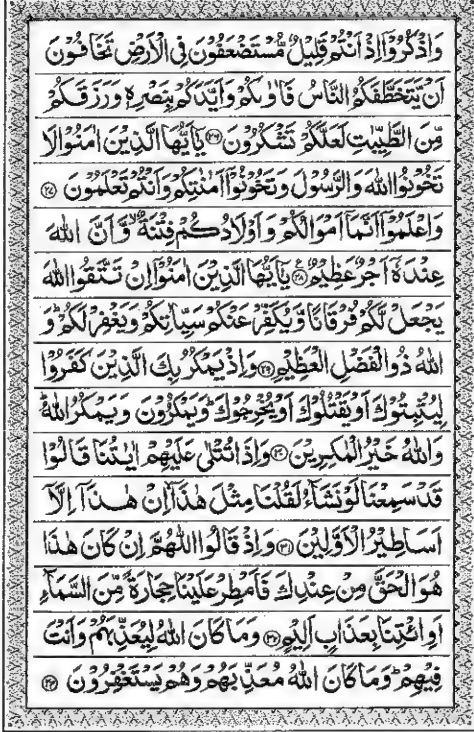 وَاذْكُرُوْٓا اِذْ اَنْتُمْ قَلِيْلٌ مُّسْتَضْعَفُوْنَ فِي الْاَرْضِ تَخَافُوْنَ
اَنْ يَّتَخَطَّفَكُمُ النَّاسُ فَاٰوٰىكُمْ وَاَيَّدَكُمْ بِنَصْرِهٖ وَرَزَقَكُمْ
مِّنَ الطَّيِّبٰتِ لَعَلَّكُمْ تَشْكُرُوْنَ ۝۲۶ يٰٓاَيُّهَا الَّذِيْنَ اٰمَنُوْا لَا
تَخُوْنُوا اللّٰهَ وَالرَّسُوْلَ وَتَخُوْنُوْٓا اَمٰنٰتِكُمْ وَاَنْتُمْ تَعْلَمُوْنَ ۝۲۷
وَاعْلَمُوْٓا اَنَّمَآ اَمْوَالُكُمْ وَاَوْلَادُكُمْ فِتْنَةٌ ۙ وَّاَنَّ اللّٰهَ
عِنْدَهٗٓ اَجْرٌ عَظِيْمٌ ۝۲۸ يٰٓاَيُّهَا الَّذِيْنَ اٰمَنُوْٓا اِنْ تَتَّقُوا اللّٰهَ
يَجْعَلْ لَّكُمْ فُرْقَانًا وَّيُكَفِّرْ عَنْكُمْ سَيِّاٰتِكُمْ وَيَغْفِرْ لَكُمْ ؕ وَ
اللّٰهُ ذُو الْفَضْلِ الْعَظِيْمِ ۝۲۹ وَاِذْ يَمْكُرُ بِكَ الَّذِيْنَ كَفَرُوْا
لِيُثْبِتُوْكَ اَوْ يَقْتُلُوْكَ اَوْ يُخْرِجُوْكَ ؕ وَيَمْكُرُوْنَ وَيَمْكُرُ اللّٰهُ ؕ
وَاللّٰهُ خَيْرُ الْمٰكِرِيْنَ ۝۳۰ وَاِذَا تُتْلٰى عَلَيْهِمْ اٰيٰتُنَا قَالُوْا
قَدْ سَمِعْنَا لَوْ نَشَآءُ لَقُلْنَا مِثْلَ هٰذَآ ۙ اِنْ هٰذَآ اِلَّآ
اَسَاطِيْرُ الْاَوَّلِيْنَ ۝۳۱ وَاِذْ قَالُوا اللّٰهُمَّ اِنْ كَانَ هٰذَا
هُوَ الْحَقَّ مِنْ عِنْدِكَ فَاَمْطِرْ عَلَيْنَا حِجَارَةً مِّنَ السَّمَآءِ
اَوِ ائْتِنَا بِعَذَابٍ اَلِيْمٍ ۝۳۲ وَمَا كَانَ اللّٰهُ لِيُعَذِّبَهُمْ وَاَنْتَ
فِيْهِمْ ؕ وَمَا كَانَ اللّٰهُ مُعَذِّبَهُمْ وَهُمْ يَسْتَغْفِرُوْنَ ۝۳۳